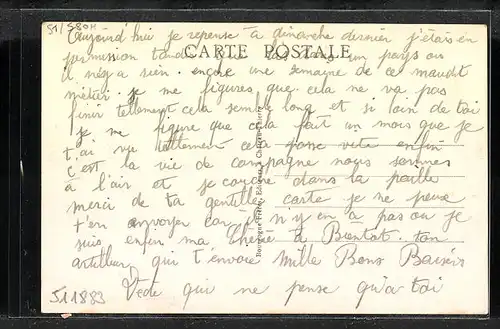 51/580H
Aujourd'hui je repense à dimanche dernier j'étais en
CARTE POSTALE
permission tandis que là dans un pays ou
il n'y a rien. encore une semagne de ce maudit
métier. je me figures que cela ne va pas
finir tellement cela semble long et si loin de toi
je me figure que cela fait un mois que je
t'ai vu tellement cela passe vite enfin
c'est la vie de campagne nous sommes
à l'air et je couche dans la paille
merci de ta gentille carte je ne peux
t'en envoyer car il n'y en a pas ou je
suis enfin ma Cherie à Bientot. ton
artilleur qui t'envoie Mille Bons Baisers
Dede qui ne pense qu'a toi
Bourgogne Frères, Editeurs à
511883